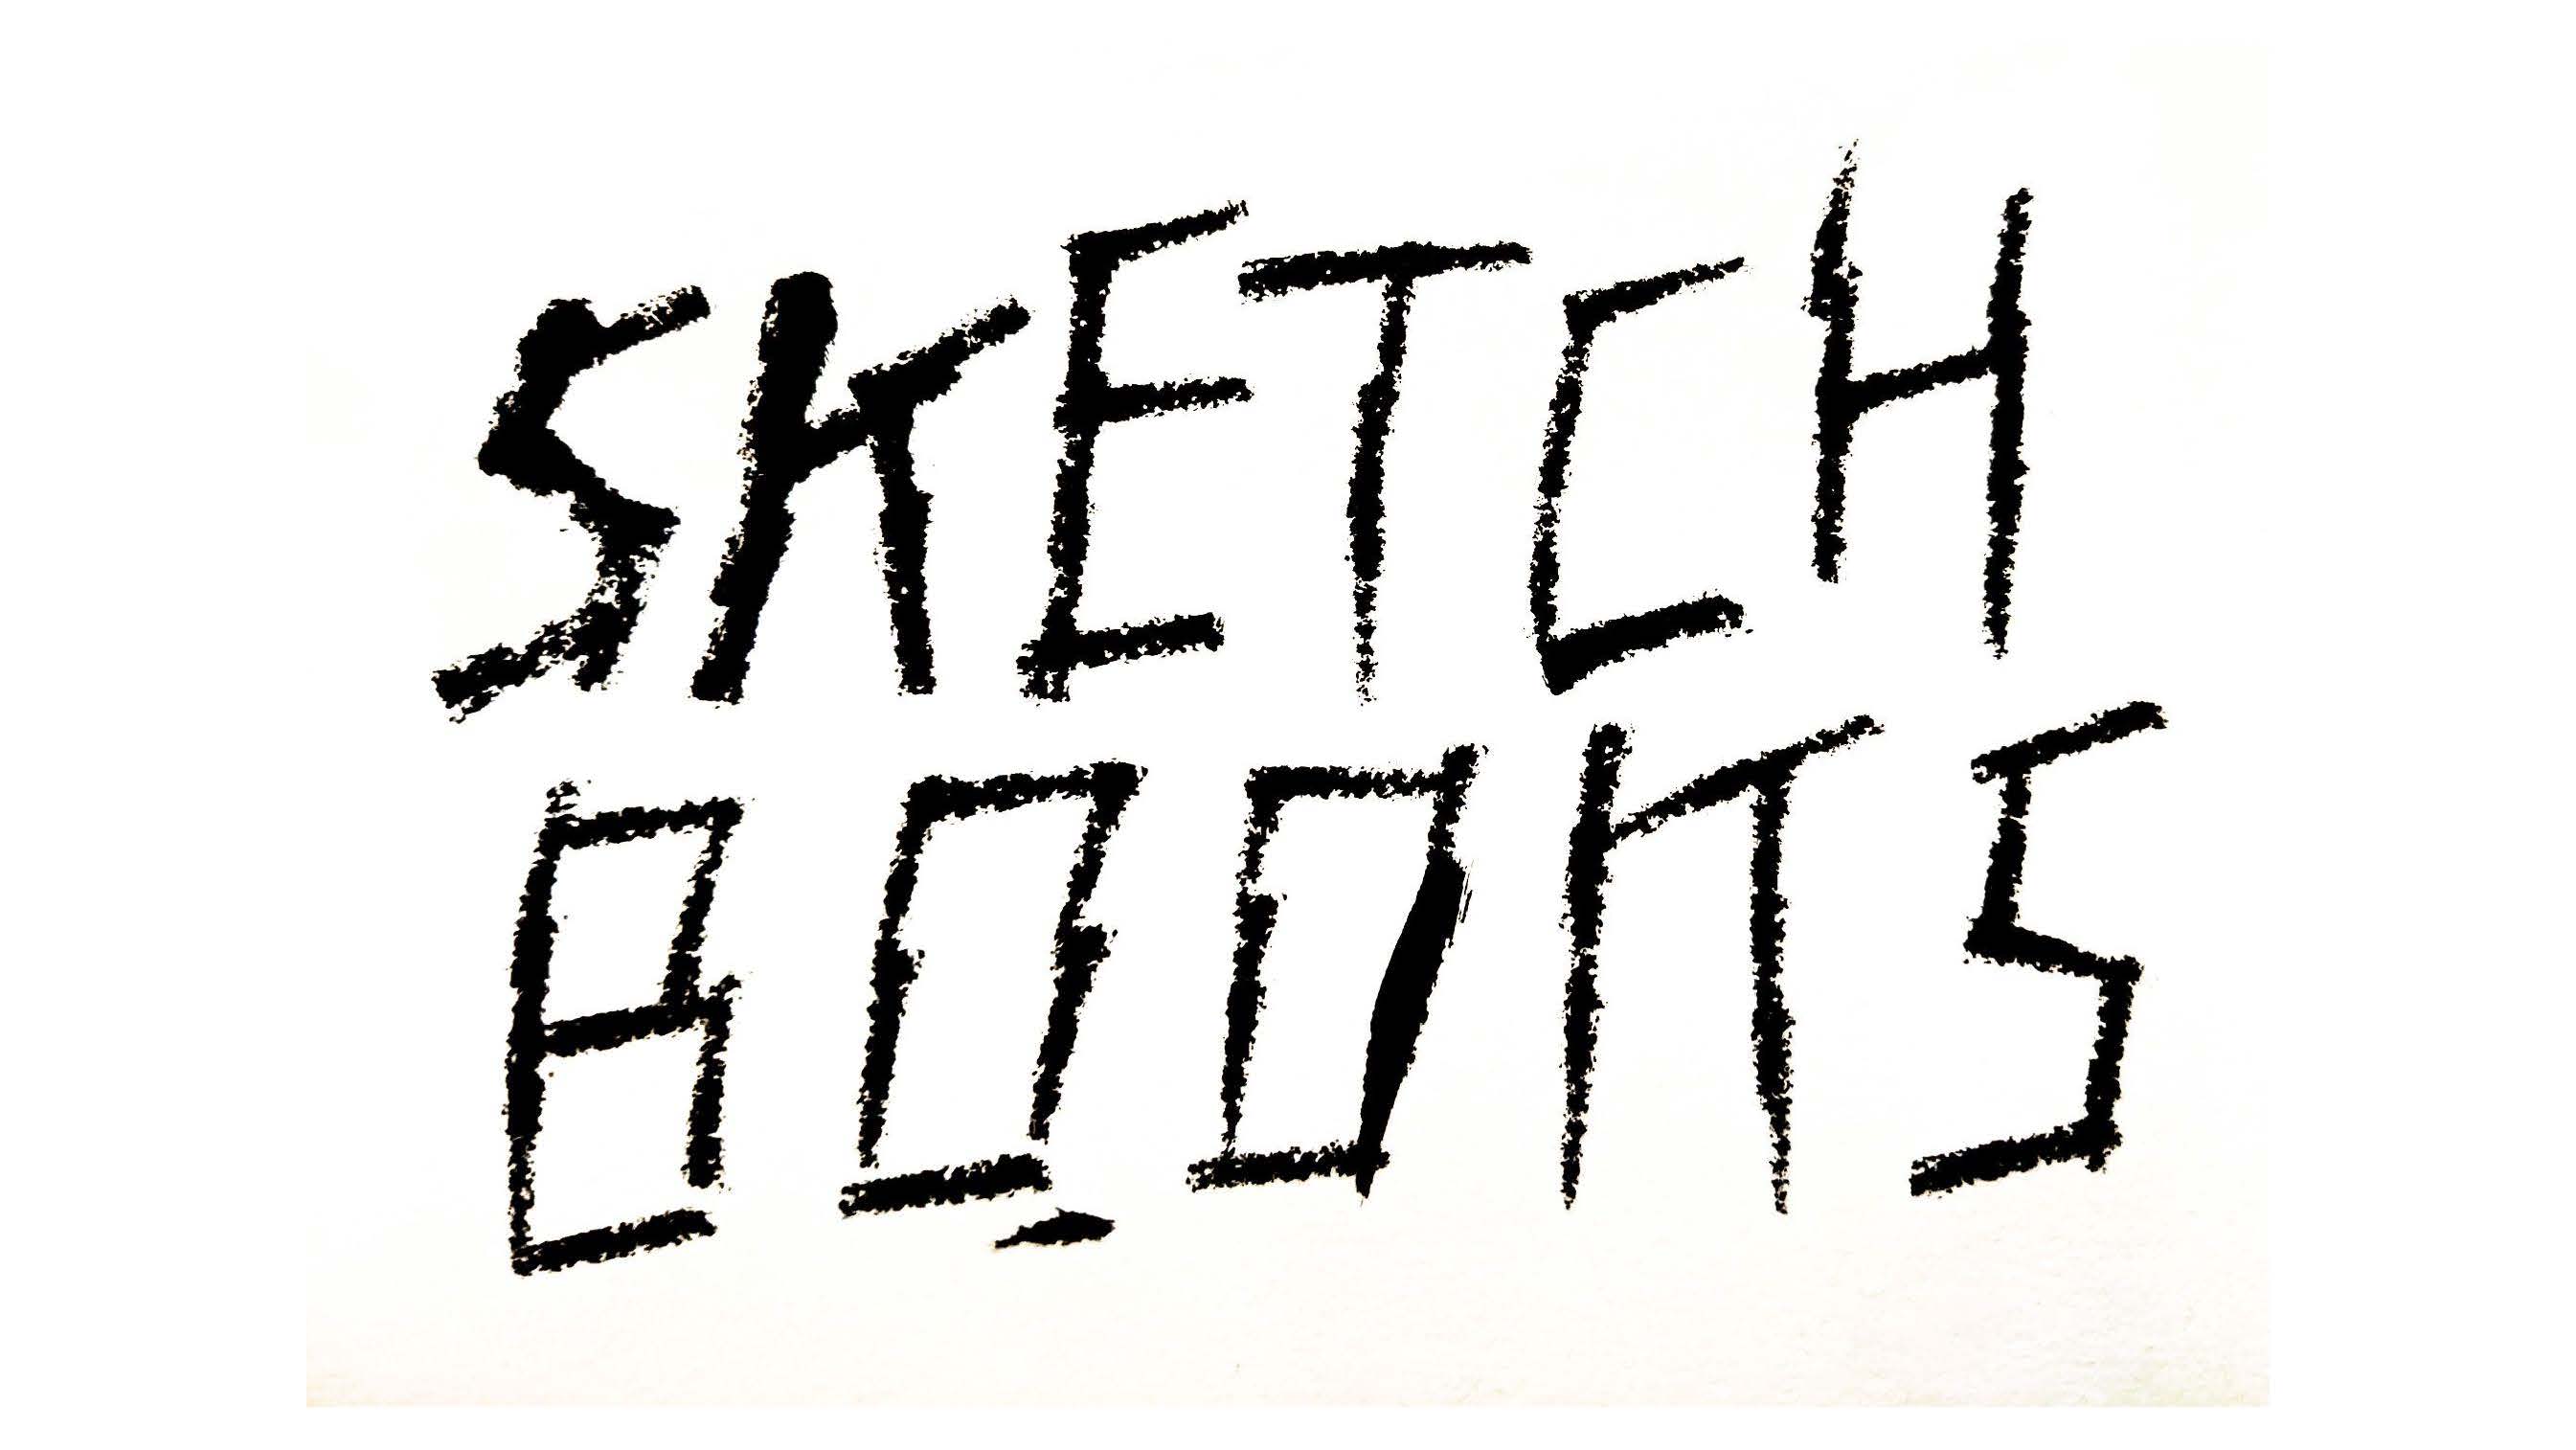 SKETCH
BOOKS